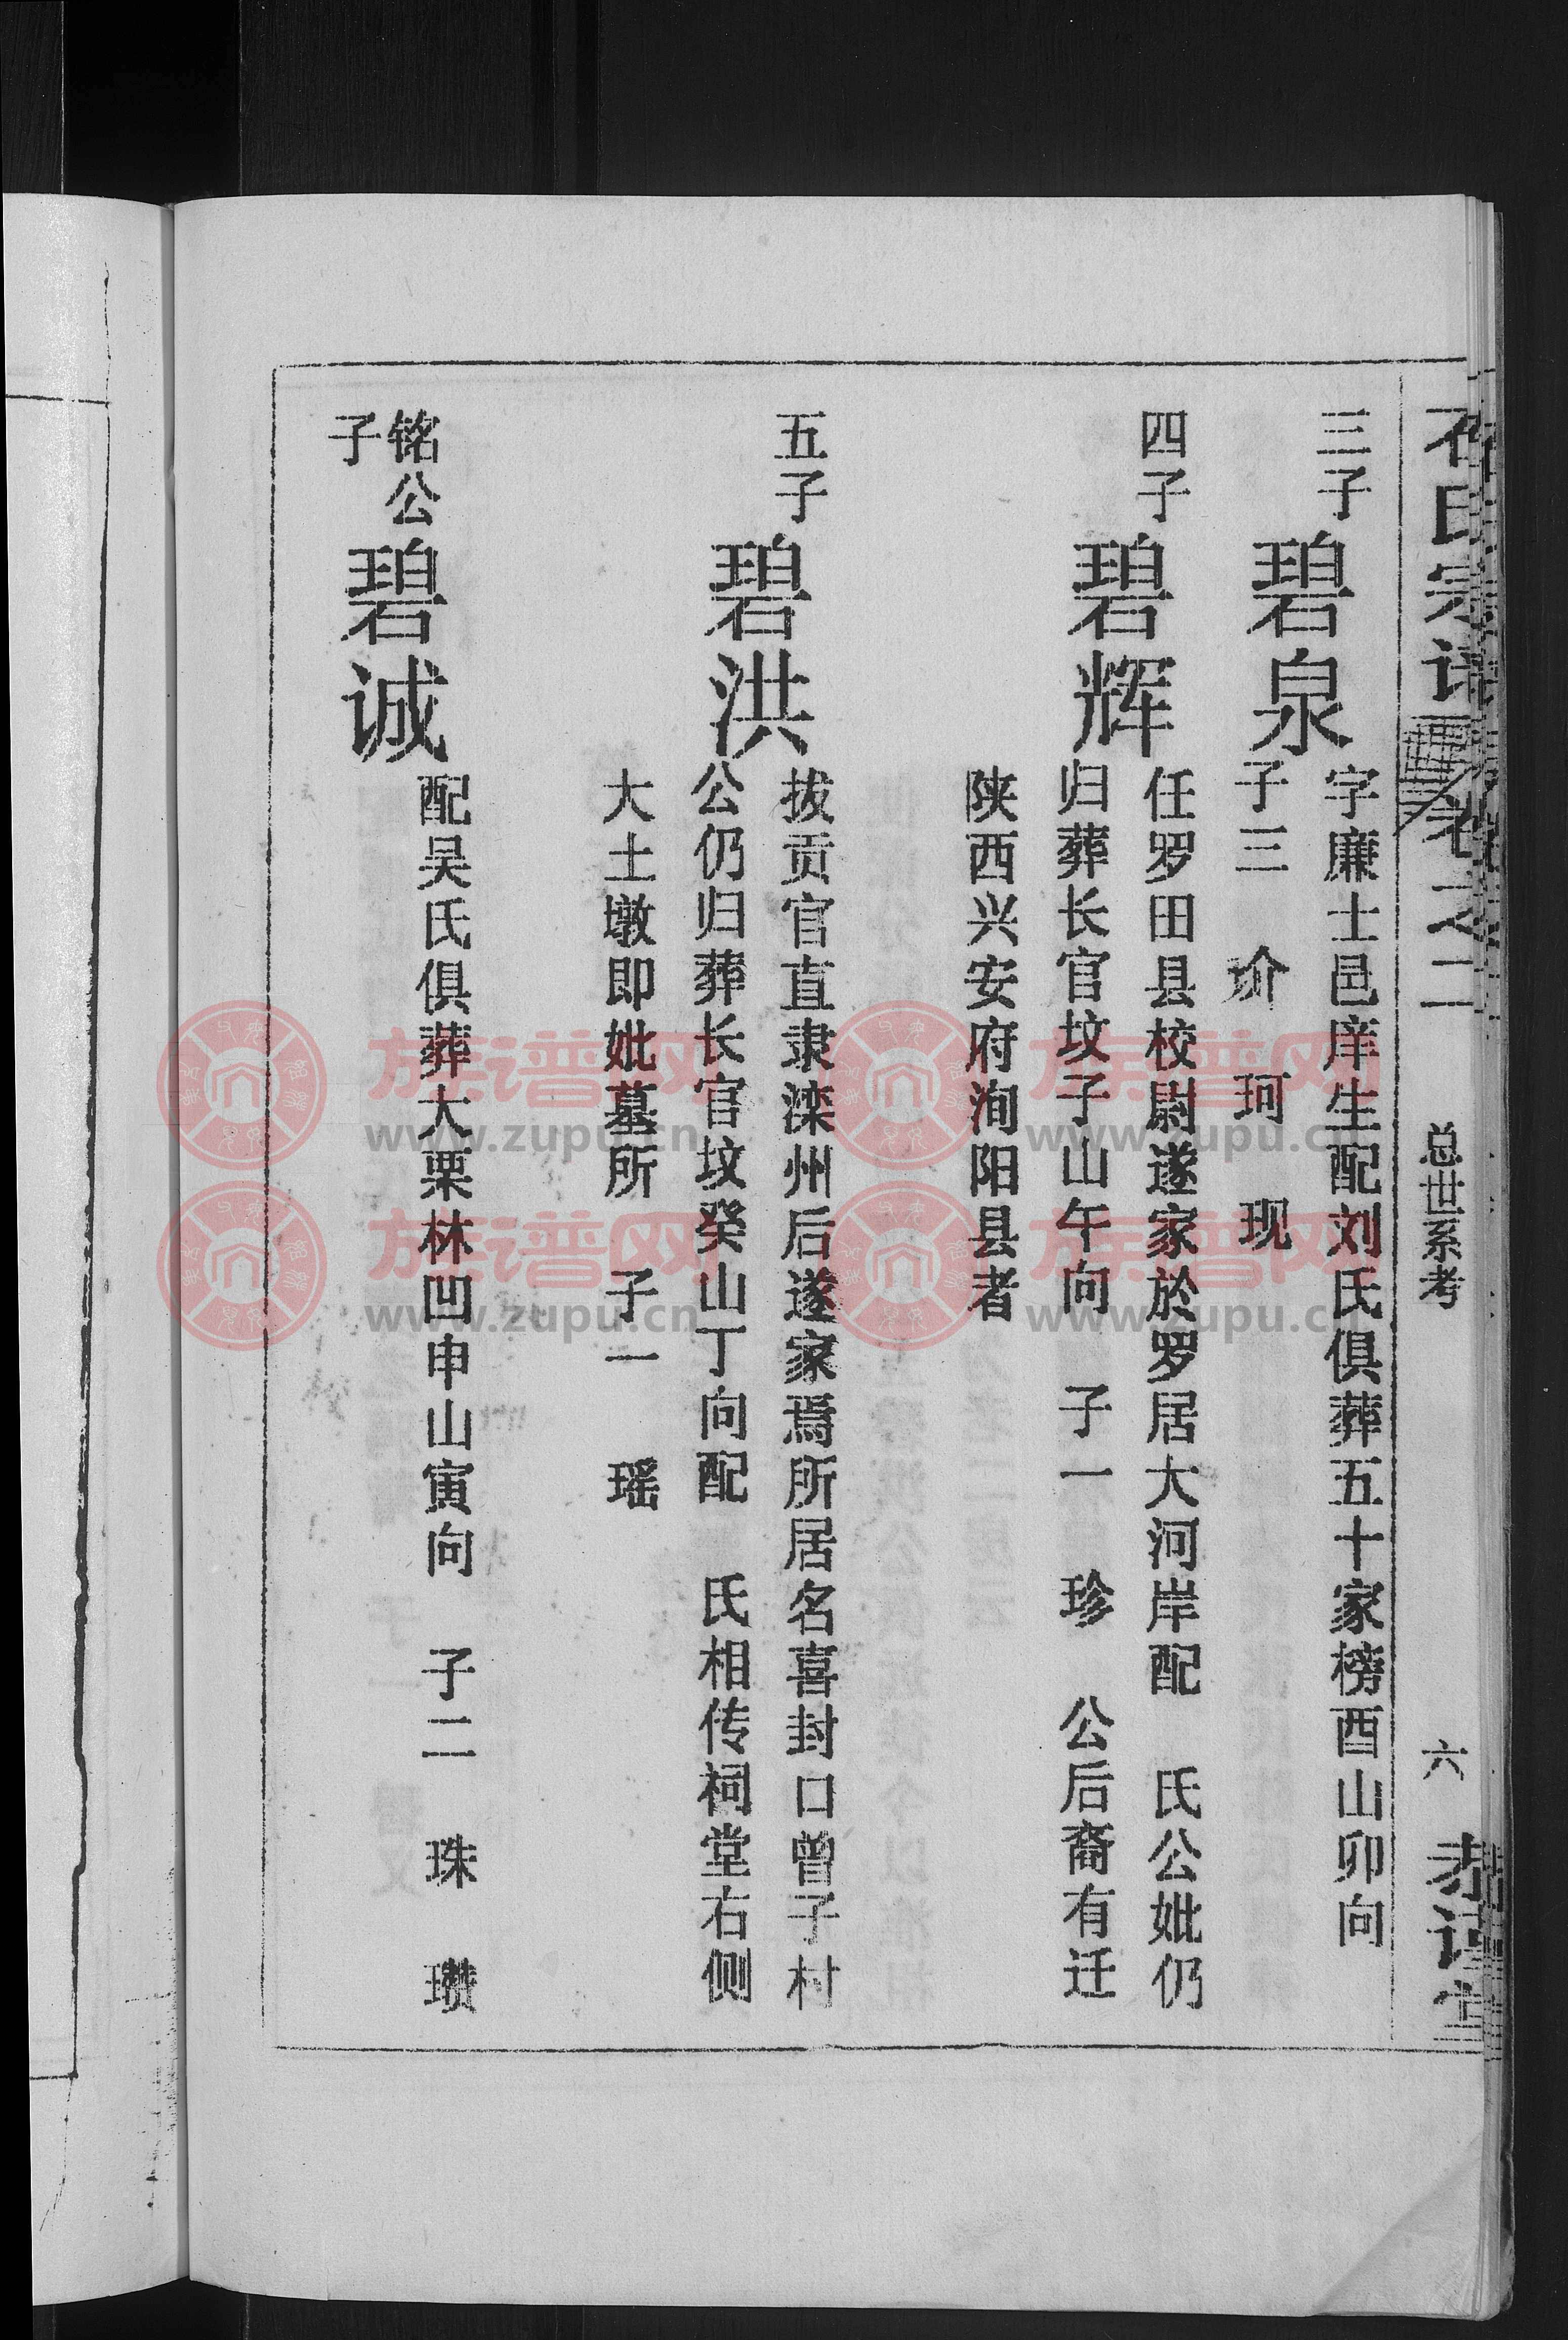 石氏宗谱 卷之二 总世系考 六
三子 碧泉 字廉士邑庠生配刘氏俱葬五十家榜酉山卯向
子三 玠 珂 现
四子 碧辉 任罗田县校尉遂家於罗居大河岸配 氏公妣仍
归葬长官坟子山午向 子一 珍 公后裔有迁
陕西兴安府洵阳县者
五子 碧洪 拔贡官直隶滦州后遂家焉所居名喜封口曾子村
公仍归葬长官坟癸山丁向配 氏相传祠堂右侧
大土墩即妣墓所 子一 瑶
铭公子 碧诚 配吴氏俱葬大栗林凹申山寅向 子二 珠 瓒
族谱网
www.zupu.cn
族谱网
www.zupu.cn
族谱网
www.zupu.cn
族谱网
www.zupu.cn